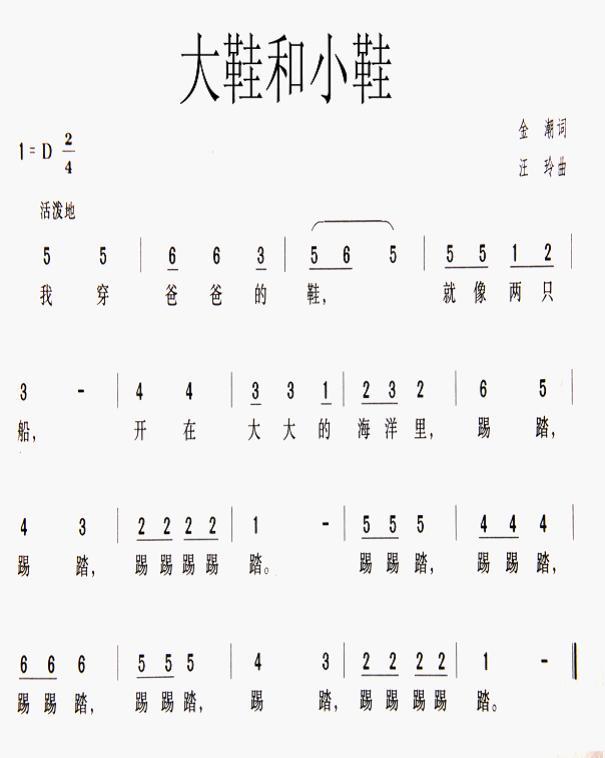 大鞋和小鞋
金 潮词
1=D 2/4
汪 玲曲
活泼地
5 5 | 6 6 3 | 5 6 5 | 5 5 1 2 |
我 穿 爸 爸 的 鞋, 就 像 两 只
3 - | 4 4 | 3 3 1 | 2 3 2 | 6 5 |
船, 开 在 大 大 的 海 洋 里, 踢 踏,
4 3 | 2 2 2 2 | 1 - | 5 5 5 | 4 4 4 |
踢 踏, 踢 踢 踢 踢 踏。 踢 踢 踏, 踢 踢 踏,
6 6 6 | 5 5 5 | 4 3 | 2 2 2 2 | 1 - ‖
踢 踢 踏, 踢 踢 踏, 踢 踏, 踢 踢 踢 踢 踏。